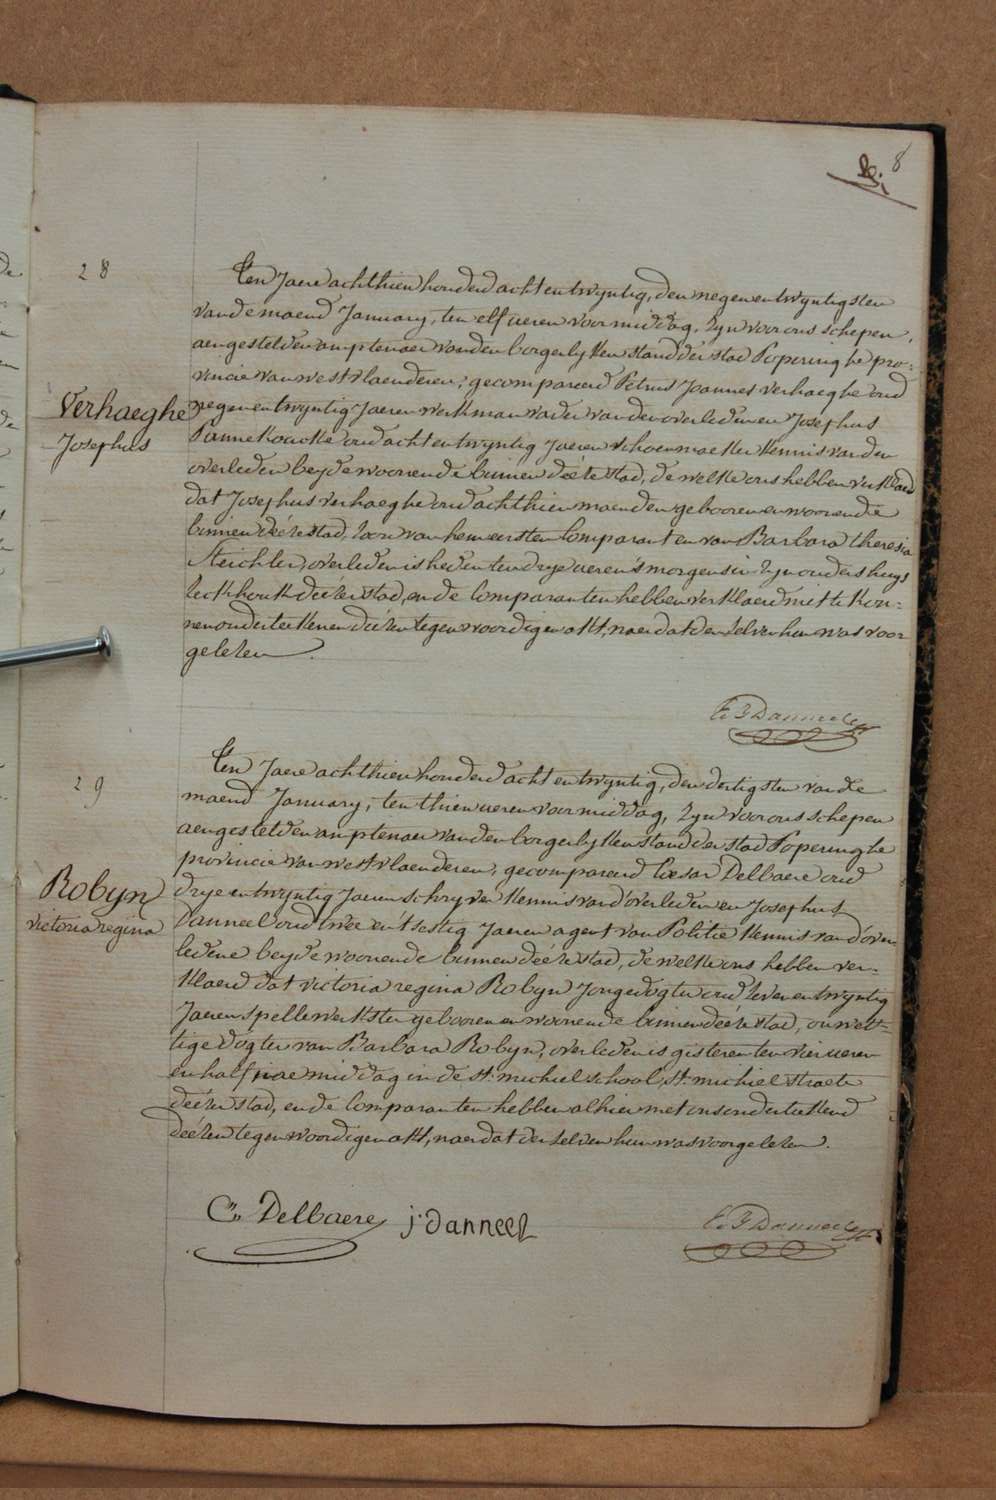 8
28
Ten Jaere achthien honderd acht en twyntig, den negen en twyntigsten
van de maend January, ten elf ueren voormiddag, Zyn voor ons schepen,
aengestelden amptenaer van den borgerlyken stand der stad Poperinghe pro-
vincie van westvlaenderen, gecompareerd Petrus Joannes verhaeghe oud
Verhaeghe
negen en twyntig Jaeren werkman vader van den overledenen Josephus
Josephus
Pannekoucke oud acht en twyntig Jaeren schoenmaeker kennis van den
overleden beyde woonende binnen deéze stad, de welke ons hebben verklaerd
dat Josephus verhaeghe oud achthien maenden gebooren en woonende
binnen deéze stad, zoon van hem eersten Comparant en van Barbara theresia
overleden is heden ten drye ueren 's morgens in Zyn ouders huys
deézer stad, en de Comparanten hebben verklaerd niet te kon-
nen onderteekenen deézen tegenwoordigen akt, naer dat den zelven hun was voor
gelezen.
29
Ten Jaere achthien honderd acht en twyntig, den dertigsten van de
maend January, ten thien ueren voormiddag, Zyn voor ons schepen
aengestelden amptenaer van den borgerlyken stand der stad Poperinghe
provincie van westvlaenderen, gecompareerd Cesar Delbaere oud
Robyn
drye en twyntig Jaeren schryver kennis van d'overledene en Josephus
victoria regina
Danneel oud twee en 't sestig Jaeren agent van Politie kennis van d'over-
ledene beyde woonende binnen deéze stad, de welke ons hebben ver-
klaerd dat victoria regina Robyn Jonge dogter oud zeven en twyntig
Jaeren spellewerkster gebooren en woonende binnen deéze stad, onwet-
tige dogter van Barbara Robyn, overleden is gisteren ten vier ueren
en half nae middag in de st. michiel school, st. michiel straete
deézer stad, en de Comparanten hebben alhier met ons onderteekend
deézen tegenwoordigen akt, naer dat den zelven hun was voorgelezen.
C. Delbaere j. danneel